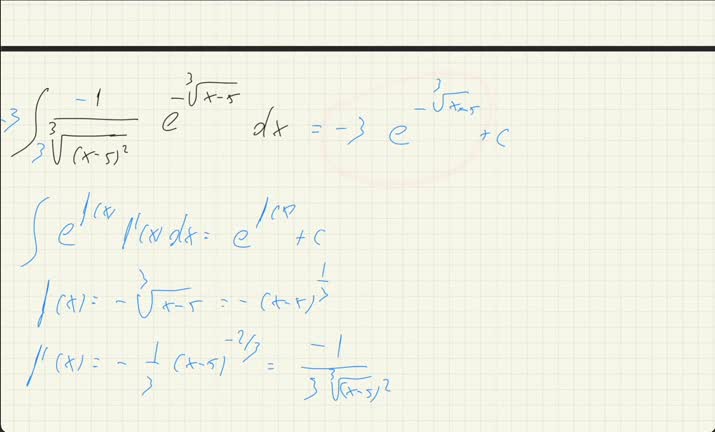 -3 ∫ -1/(3 ∛(x-5)²) e^(-∛(x-5)) dx = -3 e^(-∛(x-5)) + c
∫ e^(f(x)) f'(x) dx = e^(f(x)) + c
f(x) = - ∛(x-5) = - (x-5)^(1/3)
f'(x) = - 1/3 (x-5)^(-2/3) = -1/(3 ∛(x-5)²)